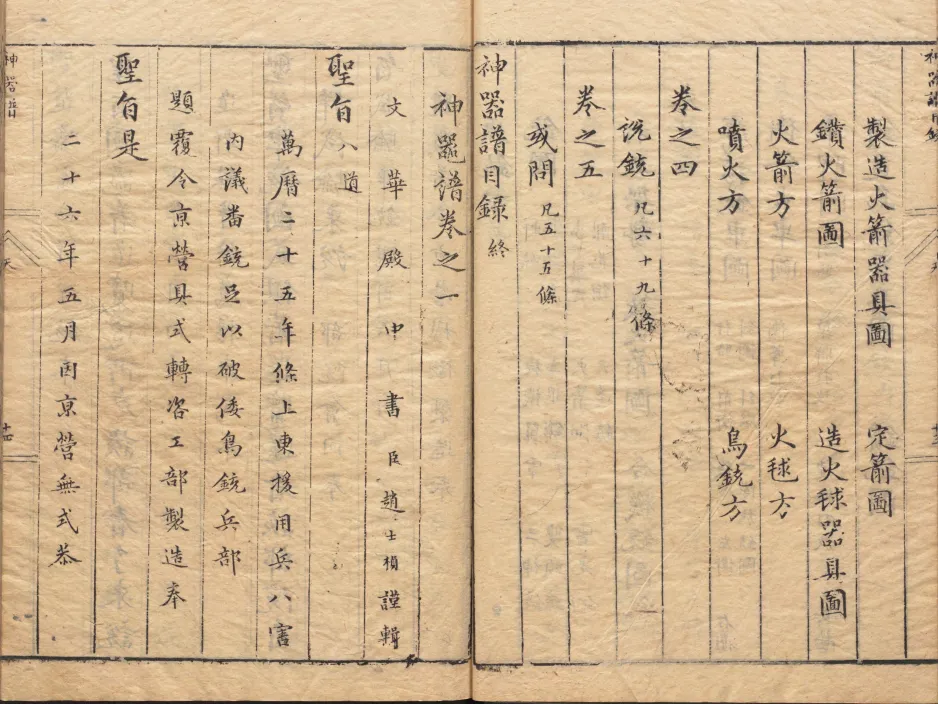 神器譜目錄
製造火箭器具圖　定箭圖
鑽火箭圖　造火毬器具圖
火箭方　火毬方
噴火方　鳥銃方
卷之四
說銃 凡六十九條
卷之五
或問 凡五十五條
神器譜目録 終
神噐譜卷之一
文華殿中書臣趙士楨謹輯
聖旨八道
萬曆二十五年條上東援用兵八害
內議番銃足以破倭鳥銃兵部
題覆令京營具式轉咨工部製造奉
聖旨是
二十六年五月因京營無式恭
神器譜